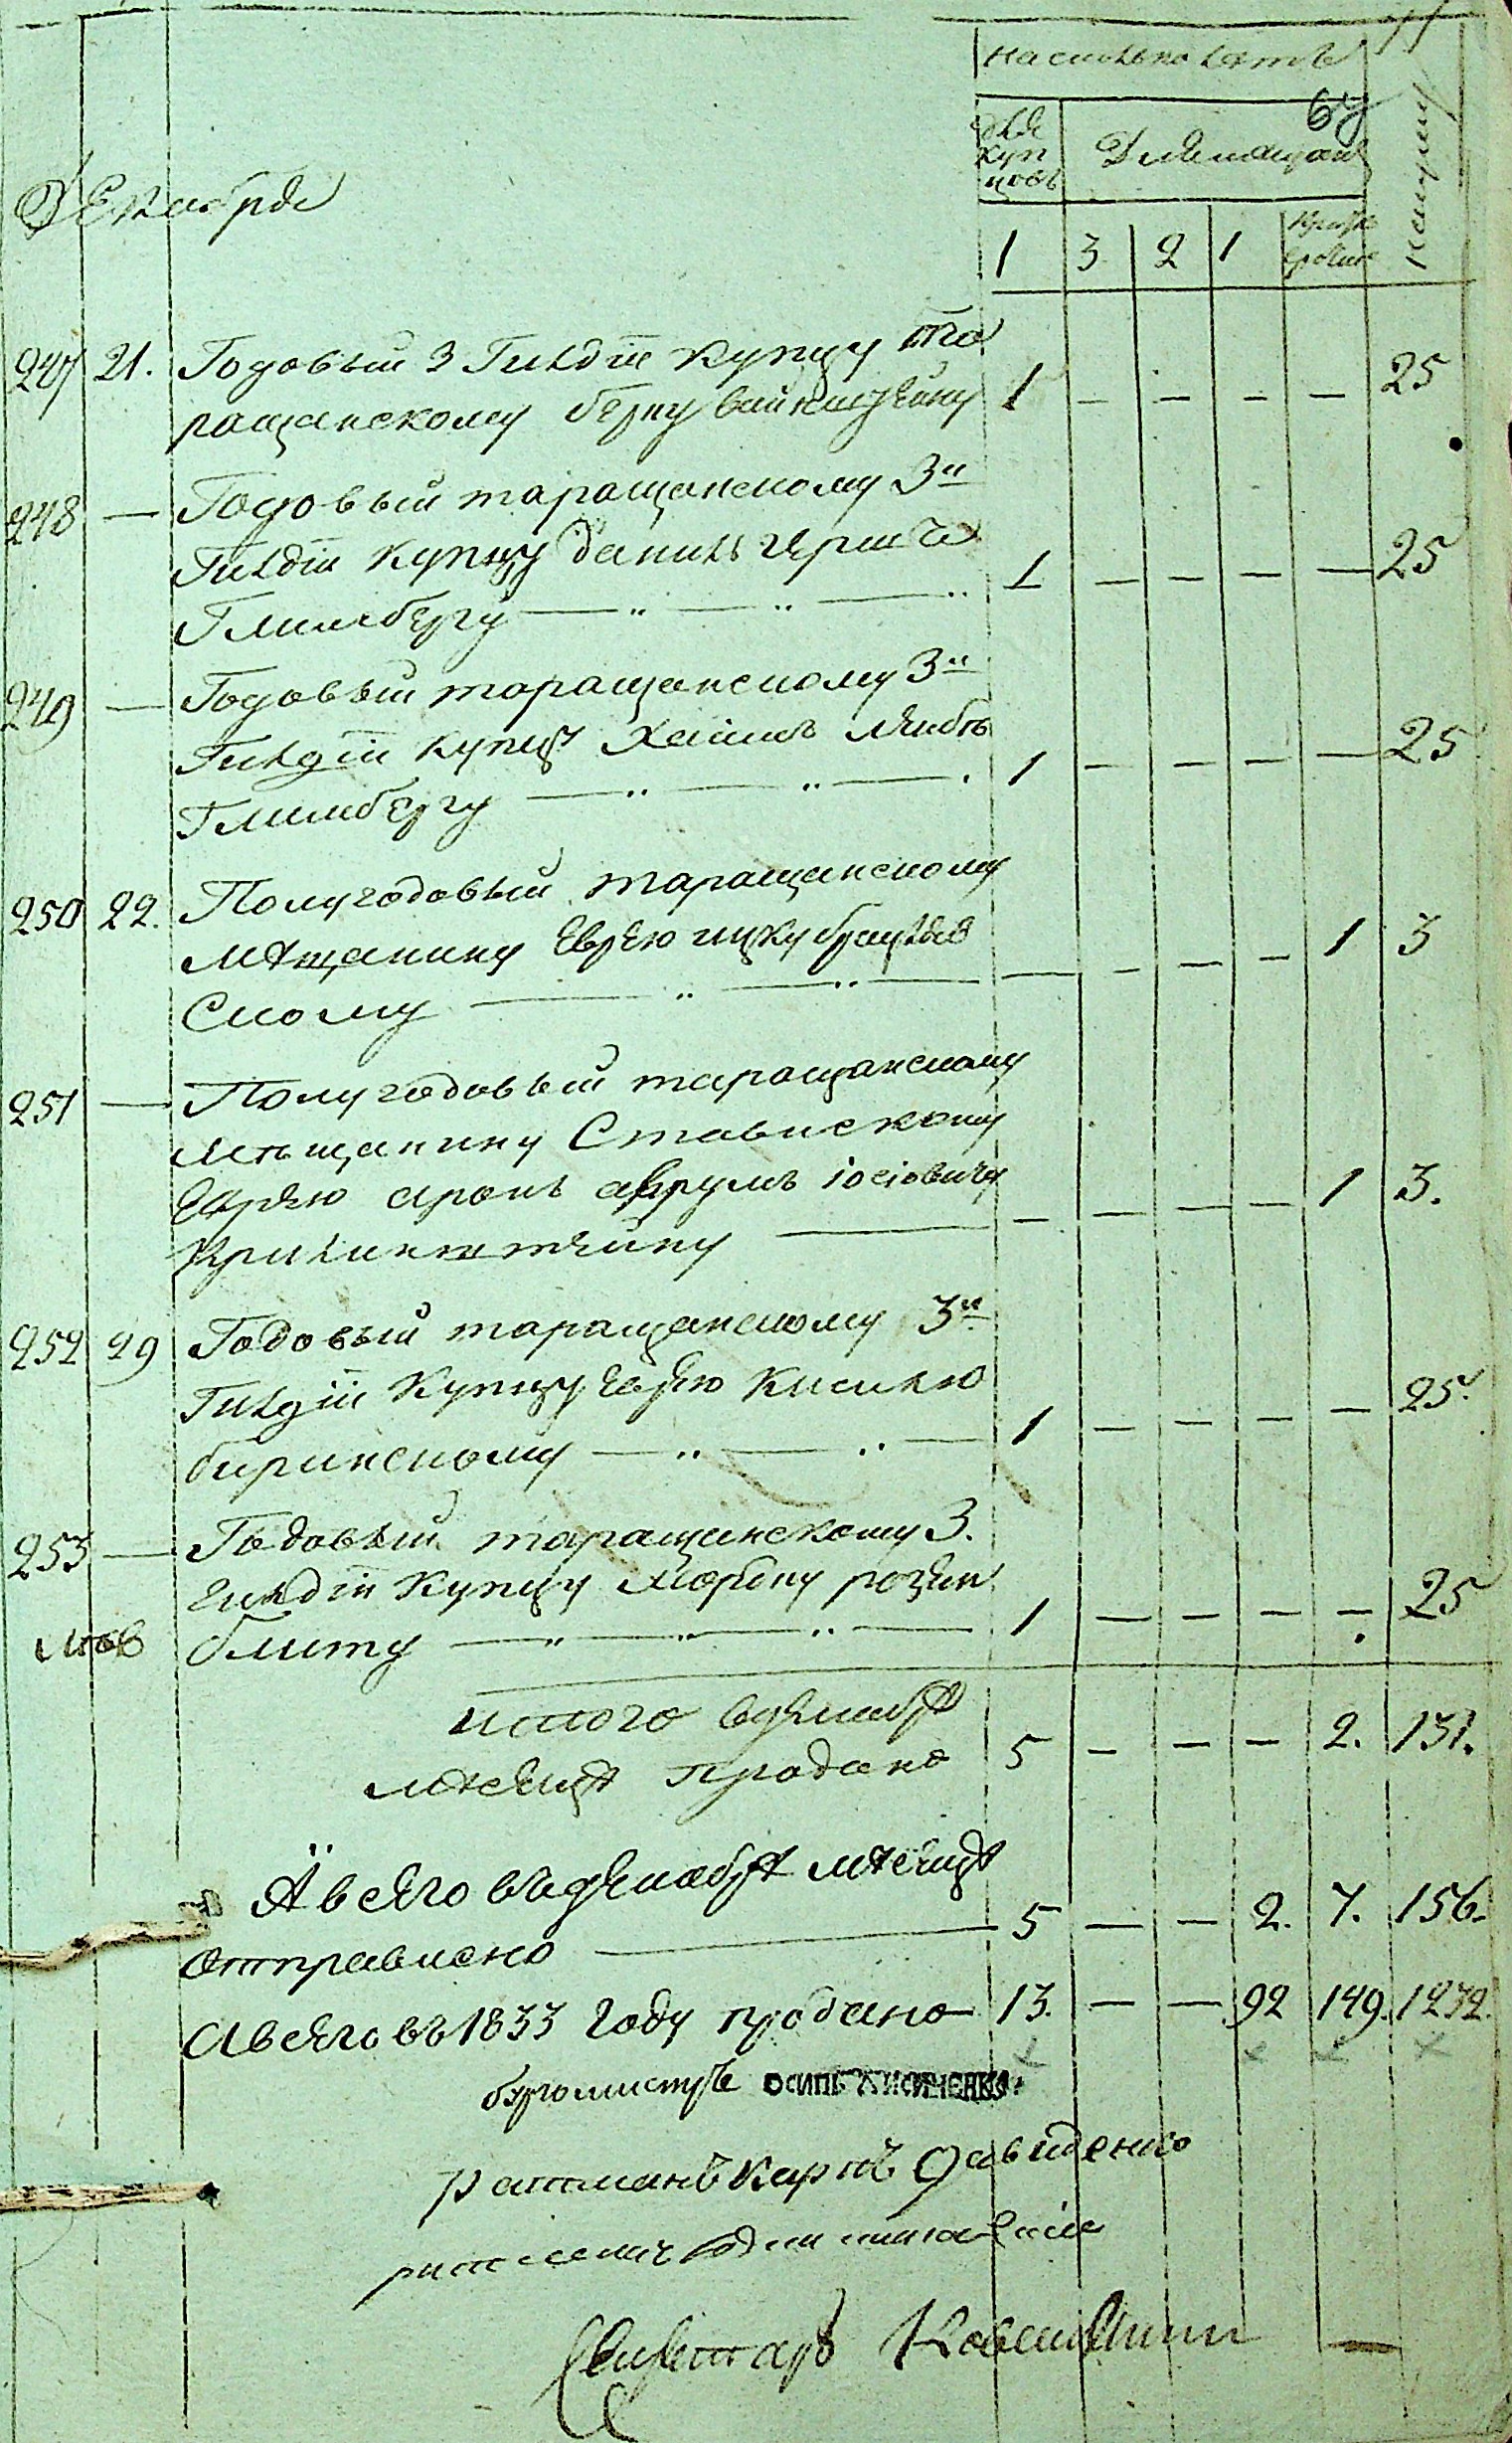 на сколько летъ
для куп цовъ
Для мещанъ
64
Декабря
1 3 2 1
247 21. Годовый 3 Гилдіи купцу та
ращанскому берку вайнштейну 1 — — — — 25
248 — Годовый таращанскому 3й
Гилдіи купцу даниль герш
Глимбергу — 1 — — — — 25
249 — Годовый таращанскому 3й
Гилдіи купцу Хаимъ лейбъ
Глимбергу — 1 — — — — 25
250 22. Полугодовый таращанскому
мѣщанину еврею ицку
скому — — — — — 1 3
251 — Полугодовый таращанскому
мѣщанину Ставискому
еврею аронъ аврумъ іосіовичу
— — — — — 1 3.
252 29 Годовый таращанскому 3й
Гилдіи купцу еврею Кисилю
биринскому — 1 — — — — 25.
253 — Годовый таращанскому 3.
гилдіи купцу розен
блиту — 1 — — — — 25
итого въ декабрѣ
мѣсяцѣ продано 5 — — — 2. 131.
А всего въ декабрѣ мѣсяцѣ
отправлено — 5 — — 2. 7. 156.
А всего въ 1833 году продано 13. — — 92 149. 1232.
бургомистръ ОСИПЪ
ратманъ карпъ давиденко
Секретарь